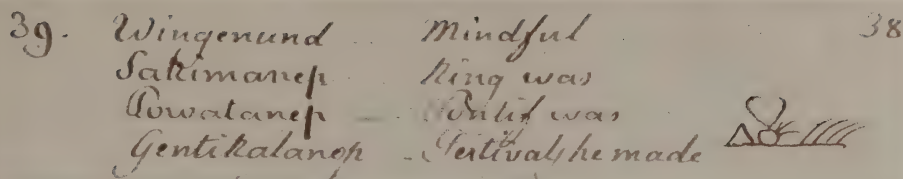 39. Wingenund Mindful 38
Sakimanep King was
Powatanep – Pontif was
Gentikalanep – Festivals he made